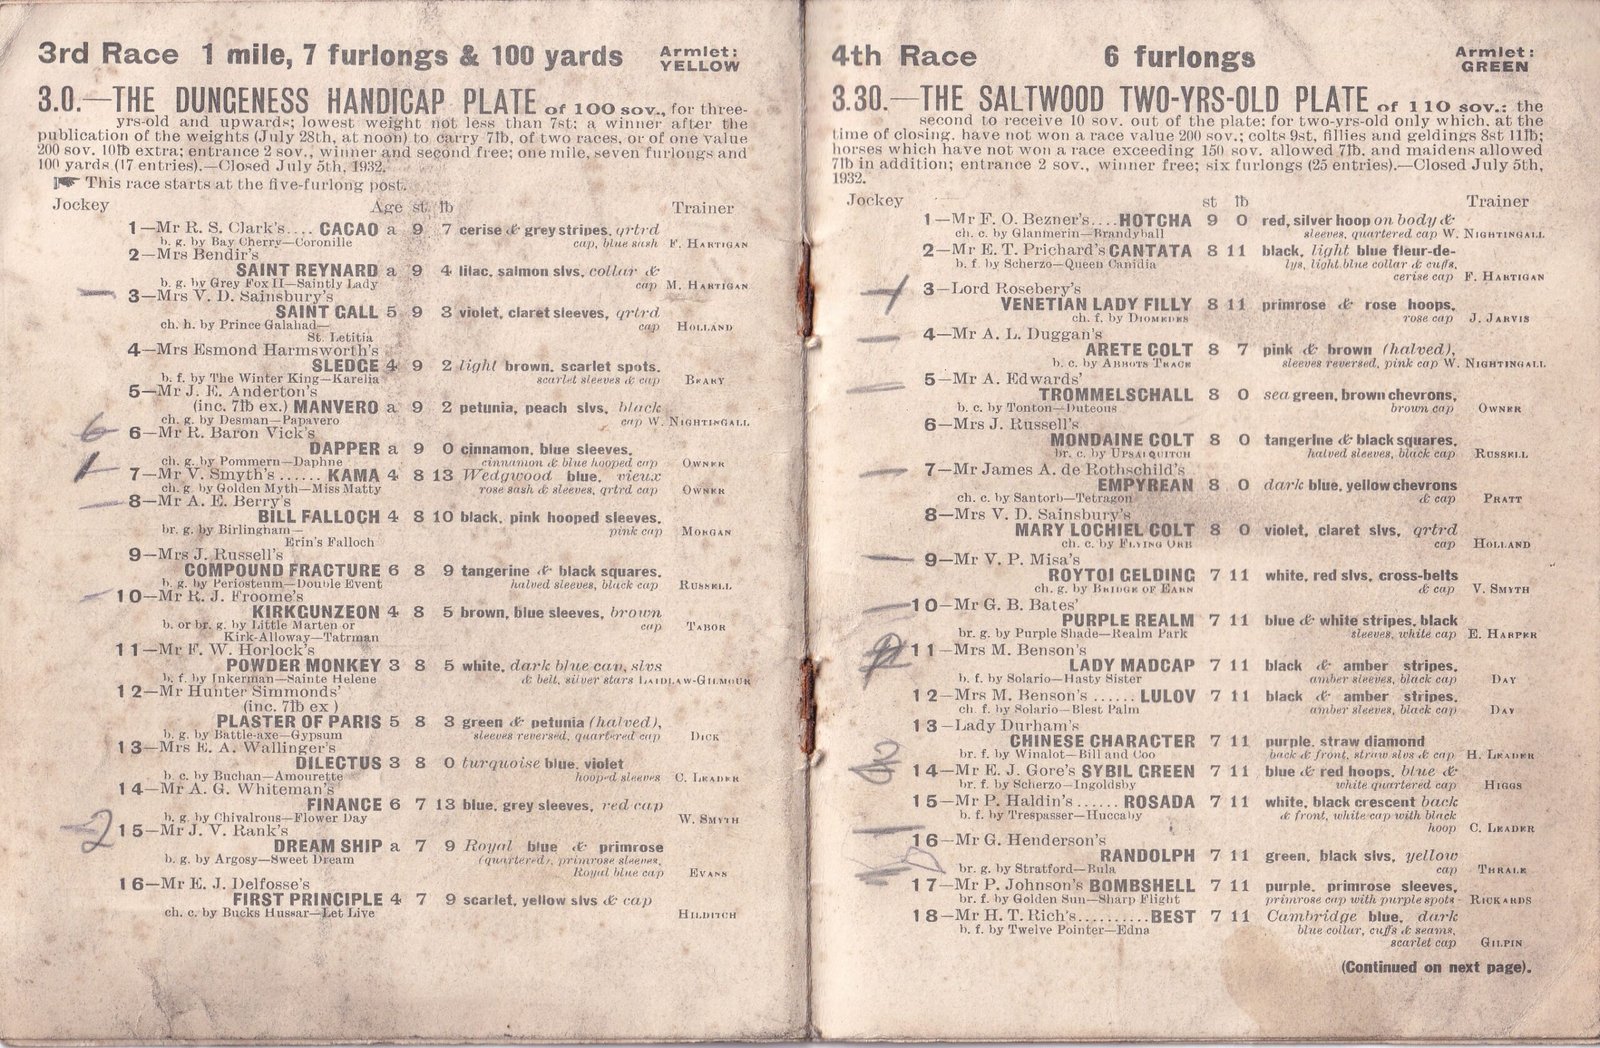 3rd Race 1 mile, 7 furlongs & 100 yards Armlet: YELLOW
3.0.—THE DUNGENESS HANDICAP PLATE of 100 sov., for three-
yrs-old and upwards; lowest weight not less than 7st; a winner after the
publication of the weights (July 28th, at noon) to carry 7lb, of two races, or of one value
200 sov. 10lb extra; entrance 2 sov., winner and second free; one mile, seven furlongs and
100 yards (17 entries).—Closed July 5th, 1932.
This race starts at the five-furlong post.
Jockey Age st. lb Trainer
1—Mr R. S. Clark's.... CACAO a 9 7 cerise & grey stripes, qrtrd
b. g. by Bay Cherry—Coronille cap, blue sash F. HARTIGAN
2—Mrs Bendir's
SAINT REYNARD a 9 4 lilac, salmon slvs, collar &
b. g. by Grey Fox II—Saintly Lady cap M. HARTIGAN
3—Mrs V. D. Sainsbury's
SAINT GALL 5 9 3 violet, claret sleeves, qrtrd
ch. h. by Prince Galahad— cap HOLLAND
St. Letitia
4—Mrs Esmond Harmsworth's
SLEDGE 4 9 2 light brown, scarlet spots.
b. f. by The Winter King—Karelia scarlet sleeves & cap BEARY
5—Mr J. E. Anderton's
(inc. 7lb ex.) MANVERO a 9 2 petunia, peach slvs, black
ch. g. by Desman—Papavero cap W. NIGHTINGALL
6
6—Mr R. Baron Vick's
DAPPER a 9 0 cinnamon, blue sleeves,
ch. g. by Pommern—Daphne cinnamon & blue hooped cap OWNER
1
7—Mr V. Smyth's ...... KAMA 4 8 13 Wedgwood blue, vieux
ch. g. by Golden Myth—Miss Matty rose sash & sleeves, qrtrd cap OWNER
8—Mr A. E. Berry's
BILL FALLOCH 4 8 10 black, pink hooped sleeves,
br. g. by Birlingham— pink cap MORGAN
Erin's Falloch
9—Mrs J. Russell's
COMPOUND FRACTURE 6 8 9 tangerine & black squares.
b. g. by Periosteum—Double Event halved sleeves, black cap RUSSELL
10—Mr R. J. Froome's
KIRKGUNZEON 4 8 5 brown, blue sleeves, brown
b. or br. g. by Little Marten or cap TABOR
Kirk-Alloway—Tatrman
11—Mr F. W. Horlock's
POWDER MONKEY 3 8 5 white, dark blue cap, slvs
b. f. by Inkerman—Sainte Helene & belt, silver stars LAIDLAW-GILMOUR
12—Mr Hunter Simmonds'
(inc. 7lb ex )
PLASTER OF PARIS 5 8 3 green & petunia (halved),
b. g. by Battle-axe—Gypsum sleeves reversed, quartered cap DICK
13—Mrs E. A. Wallinger's
DILECTUS 3 8 0 turquoise blue, violet
b. c. by Buchan—Amourette hooped sleeves C. LEADER
14—Mr A. G. Whiteman's
FINANCE 6 7 13 blue, grey sleeves, red cap
b. g. by Chivalrous—Flower Day W. SMYTH
2
15—Mr J. V. Rank's
DREAM SHIP a 7 9 Royal blue & primrose
b. g. by Argosy—Sweet Dream (quartered), primrose sleeves,
Royal blue cap EVANS
16—Mr E. J. Delfosse's
FIRST PRINCIPLE 4 7 9 scarlet, yellow slvs & cap
ch. c. by Bucks Hussar—Let Live HILDITCH
4th Race 6 furlongs Armlet: GREEN
3.30.—THE SALTWOOD TWO-YRS-OLD PLATE of 110 sov.: the
second to receive 10 sov. out of the plate; for two-yrs-old only which, at the
time of closing, have not won a race value 200 sov.; colts 9st, fillies and geldings 8st 11lb;
horses which have not won a race exceeding 150 sov. allowed 7lb, and maidens allowed
7lb in addition; entrance 2 sov., winner free; six furlongs (25 entries).—Closed July 5th,
1932.
Jockey st lb Trainer
1—Mr F. O. Bezner's....HOTCHA 9 0 red, silver hoop on body &
ch. c. by Glanmerin—Brandyball sleeves, quartered cap W. NIGHTINGALL
2—Mr E. T. Prichard's CANTATA 8 11 black, light blue fleur-de-
b. f. by Scherzo—Queen Canidia lys, light blue collar & cuffs,
cerise cap F. HARTIGAN
3—Lord Rosebery's
VENETIAN LADY FILLY 8 11 primrose & rose hoops,
ch. f. by DIOMEDES rose cap J. JARVIS
4—Mr A. L. Duggan's
ARETE COLT 8 7 pink & brown (halved),
b. c. by ABBOTS TRACE sleeves reversed, pink cap W. NIGHTINGALL
5—Mr A. Edwards'
TROMMELSCHALL 8 0 sea green, brown chevrons,
b. c. by Tonton—Duteous brown cap OWNER
6—Mrs J. Russell's
MONDAINE COLT 8 0 tangerine & black squares,
br. c. by UPSALQUITCH halved sleeves, black cap RUSSELL
7—Mr James A. de Rothschild's
EMPYREAN 8 0 dark blue, yellow chevrons
ch. c. by Santorb—Tetragon & cap PRATT
8—Mrs V. D. Sainsbury's
MARY LOCHIEL COLT 8 0 violet, claret slvs, qrtrd
ch. c. by FLYING ORB cap HOLLAND
9—Mr V. P. Misa's
ROYTOI GELDING 7 11 white, red slvs, cross-belts
ch. g. by BRIDGE OF EARN & cap V. SMYTH
10—Mr G. B. Bates'
PURPLE REALM 7 11 blue & white stripes, black
br. g. by Purple Shade—Realm Park sleeves, white cap E. HARPER
11—Mrs M. Benson's
LADY MADCAP 7 11 black & amber stripes,
b. f. by Solario—Hasty Sister amber sleeves, black cap DAY
12—Mrs M. Benson's ...... LULOV 7 11 black & amber stripes,
ch. f. by Solario—Blest Palm amber sleeves, black cap DAY
13—Lady Durham's
CHINESE CHARACTER 7 11 purple, straw diamond
br. f. by Winalot—Bill and Coo back & front, straw slvs & cap H. LEADER
14—Mr E. J. Gore's SYBIL GREEN 7 11 blue & red hoops, blue &
br. f. by Scherzo—Ingoldsby white quartered cap HIGGS
15—Mr P. Haldin's ...... ROSADA 7 11 white, black crescent back
b. f. by Trespasser—Huccaby & front, white cap with black
hoop C. LEADER
16—Mr G. Henderson's
RANDOLPH 7 11 green, black slvs, yellow
br. g. by Stratford—Bula cap THRALE
17—Mr P. Johnson's BOMBSHELL 7 11 purple, primrose sleeves,
br. f. by Golden Sun—Sharp Flight primrose cap with purple spots - RICKARDS
18—Mr H. T. Rich's..........BEST 7 11 Cambridge blue, dark
b. f. by Twelve Pointer—Edna blue collar, cuffs & seams,
scarlet cap GILPIN
(Continued on next page).